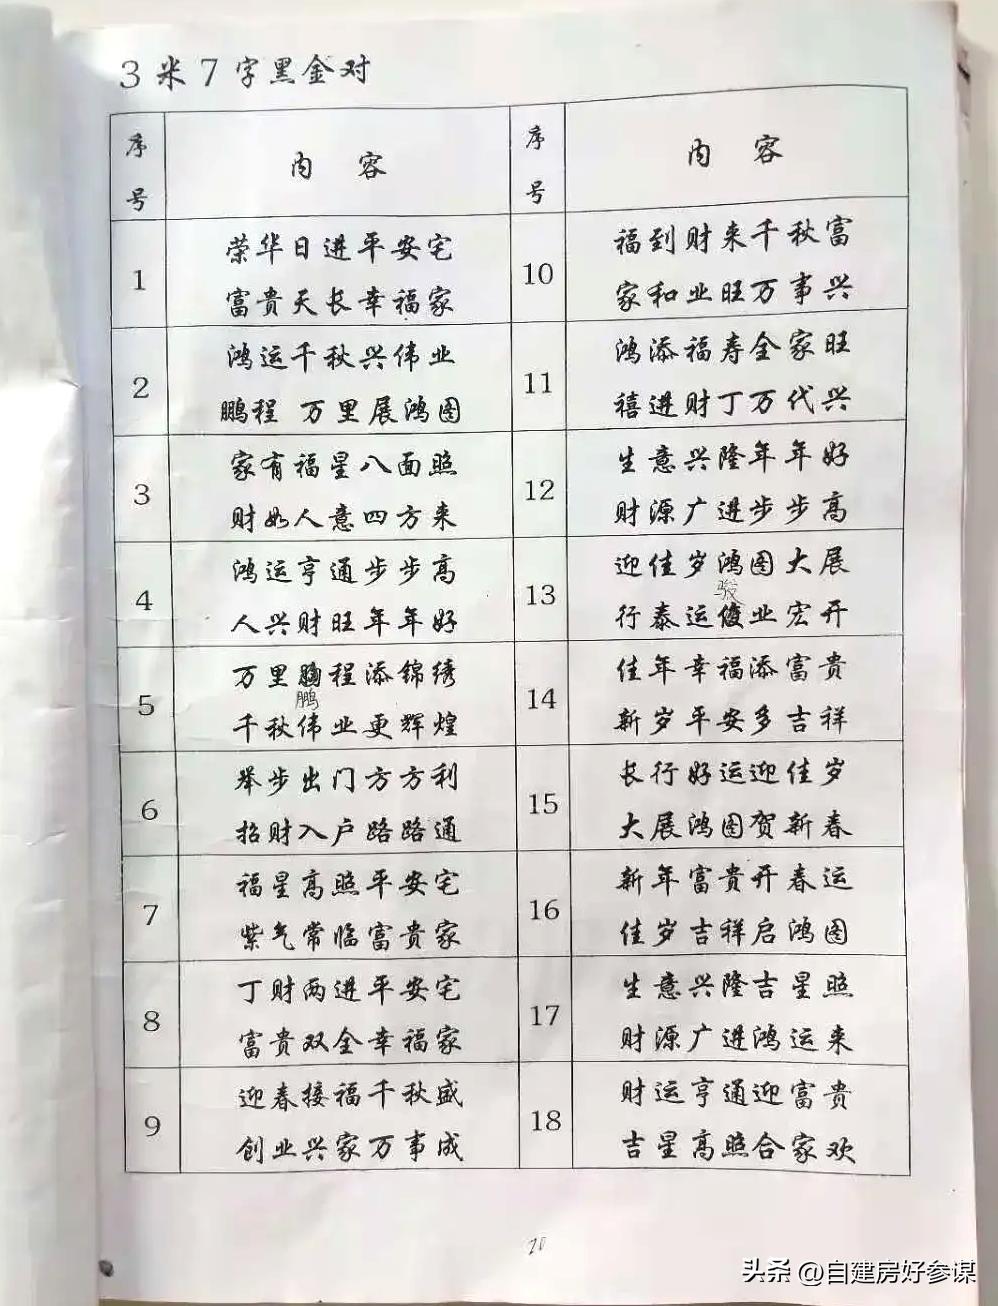 3米7字黑金对
序号 内容 序号 内容
1
荣华日进平安宅
富贵天长幸福家
2
鸿运千秋兴伟业
鹏程万里展鸿图
3
家有福星八面照
财如人意四方来
4
鸿运亨通步步高
人兴财旺年年好
5
万里鹏程添锦绣
鹏
千秋伟业更辉煌
6
举步出门方方利
招财入户路路通
7
福星高照平安宅
紫气常临富贵家
8
丁财两进平安宅
富贵双全幸福家
9
迎春接福千秋盛
创业兴家万事成
10
福到财来千秋富
家和业旺万事兴
11
鸿添福寿全家旺
禧进财丁万代兴
12
生意兴隆年年好
财源广进步步高
13
迎佳岁鸿图大展
骏
行泰运俊业宏开
14
佳年幸福添富贵
新岁平安多吉祥
15
长行好运迎佳岁
大展鸿图贺新春
16
新年富贵开春运
佳岁吉祥启鸿图
17
生意兴隆吉星照
财源广进鸿运来
18
财运亨通迎富贵
吉星高照合家欢
20
头条 @自建房好参谋